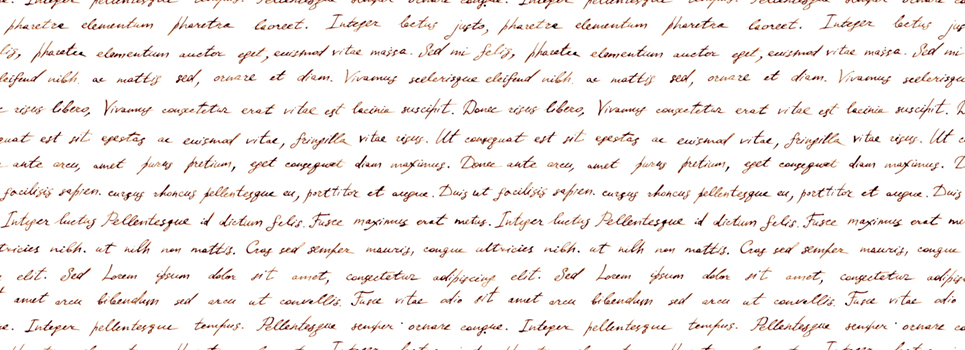 pharetra elementum pharetra laoreet. Integer lectus justo, pharetra elementum pharetra laoreet. Integer lectus
felis, pharetra elementum auctor eget, euismod vitae massa. Sed mi felis, pharetra elementum auctor eget, euismod vitae massa. Sed mi
eleifend nibh. ac mattis sed, ornare et diam. Vivamus scelerisque eleifend nibh. ac mattis sed, ornare et diam. Vivamus scelerisque
risus libero, Vivamus consectetur erat vitae est lacinia suscipit. Donec risus libero, Vivamus consectetur erat vitae est lacinia suscipit.
est sit egestas ac euismod vitae, fringilla vitae risus. Ut consequat est sit egestas ac euismod vitae, fringilla vitae risus. Ut
ante arcu, amet purus pretium, eget consequat diam maximus. Donec ante arcu, amet purus pretium, eget consequat diam maximus.
facilisis sapien. cursus rhoncus pellentesque eu, porttitor et augue. Duis ut facilisis sapien. cursus rhoncus pellentesque eu, porttitor et augue. Duis
Integer luctus Pellentesque id dictum felis. Fusce maximus erat metus. Integer luctus Pellentesque id dictum felis. Fusce maximus erat
nibh. ut nibh non mattis. Cras sed semper mauris, congue ultricies nibh. ut nibh non mattis. Cras sed semper mauris, congue
elit. Sed Lorem ipsum dolor sit amet, consectetur adipiscing elit. Sed Lorem ipsum dolor sit amet, consectetur
amet arcu bibendum sed arcu ut convallis. Fusce vitae odio sit amet arcu bibendum sed arcu ut convallis. Fusce vitae odio
Integer pellentesque tempus. Pellentesque semper ornare congue. Integer pellentesque tempus. Pellentesque semper ornare